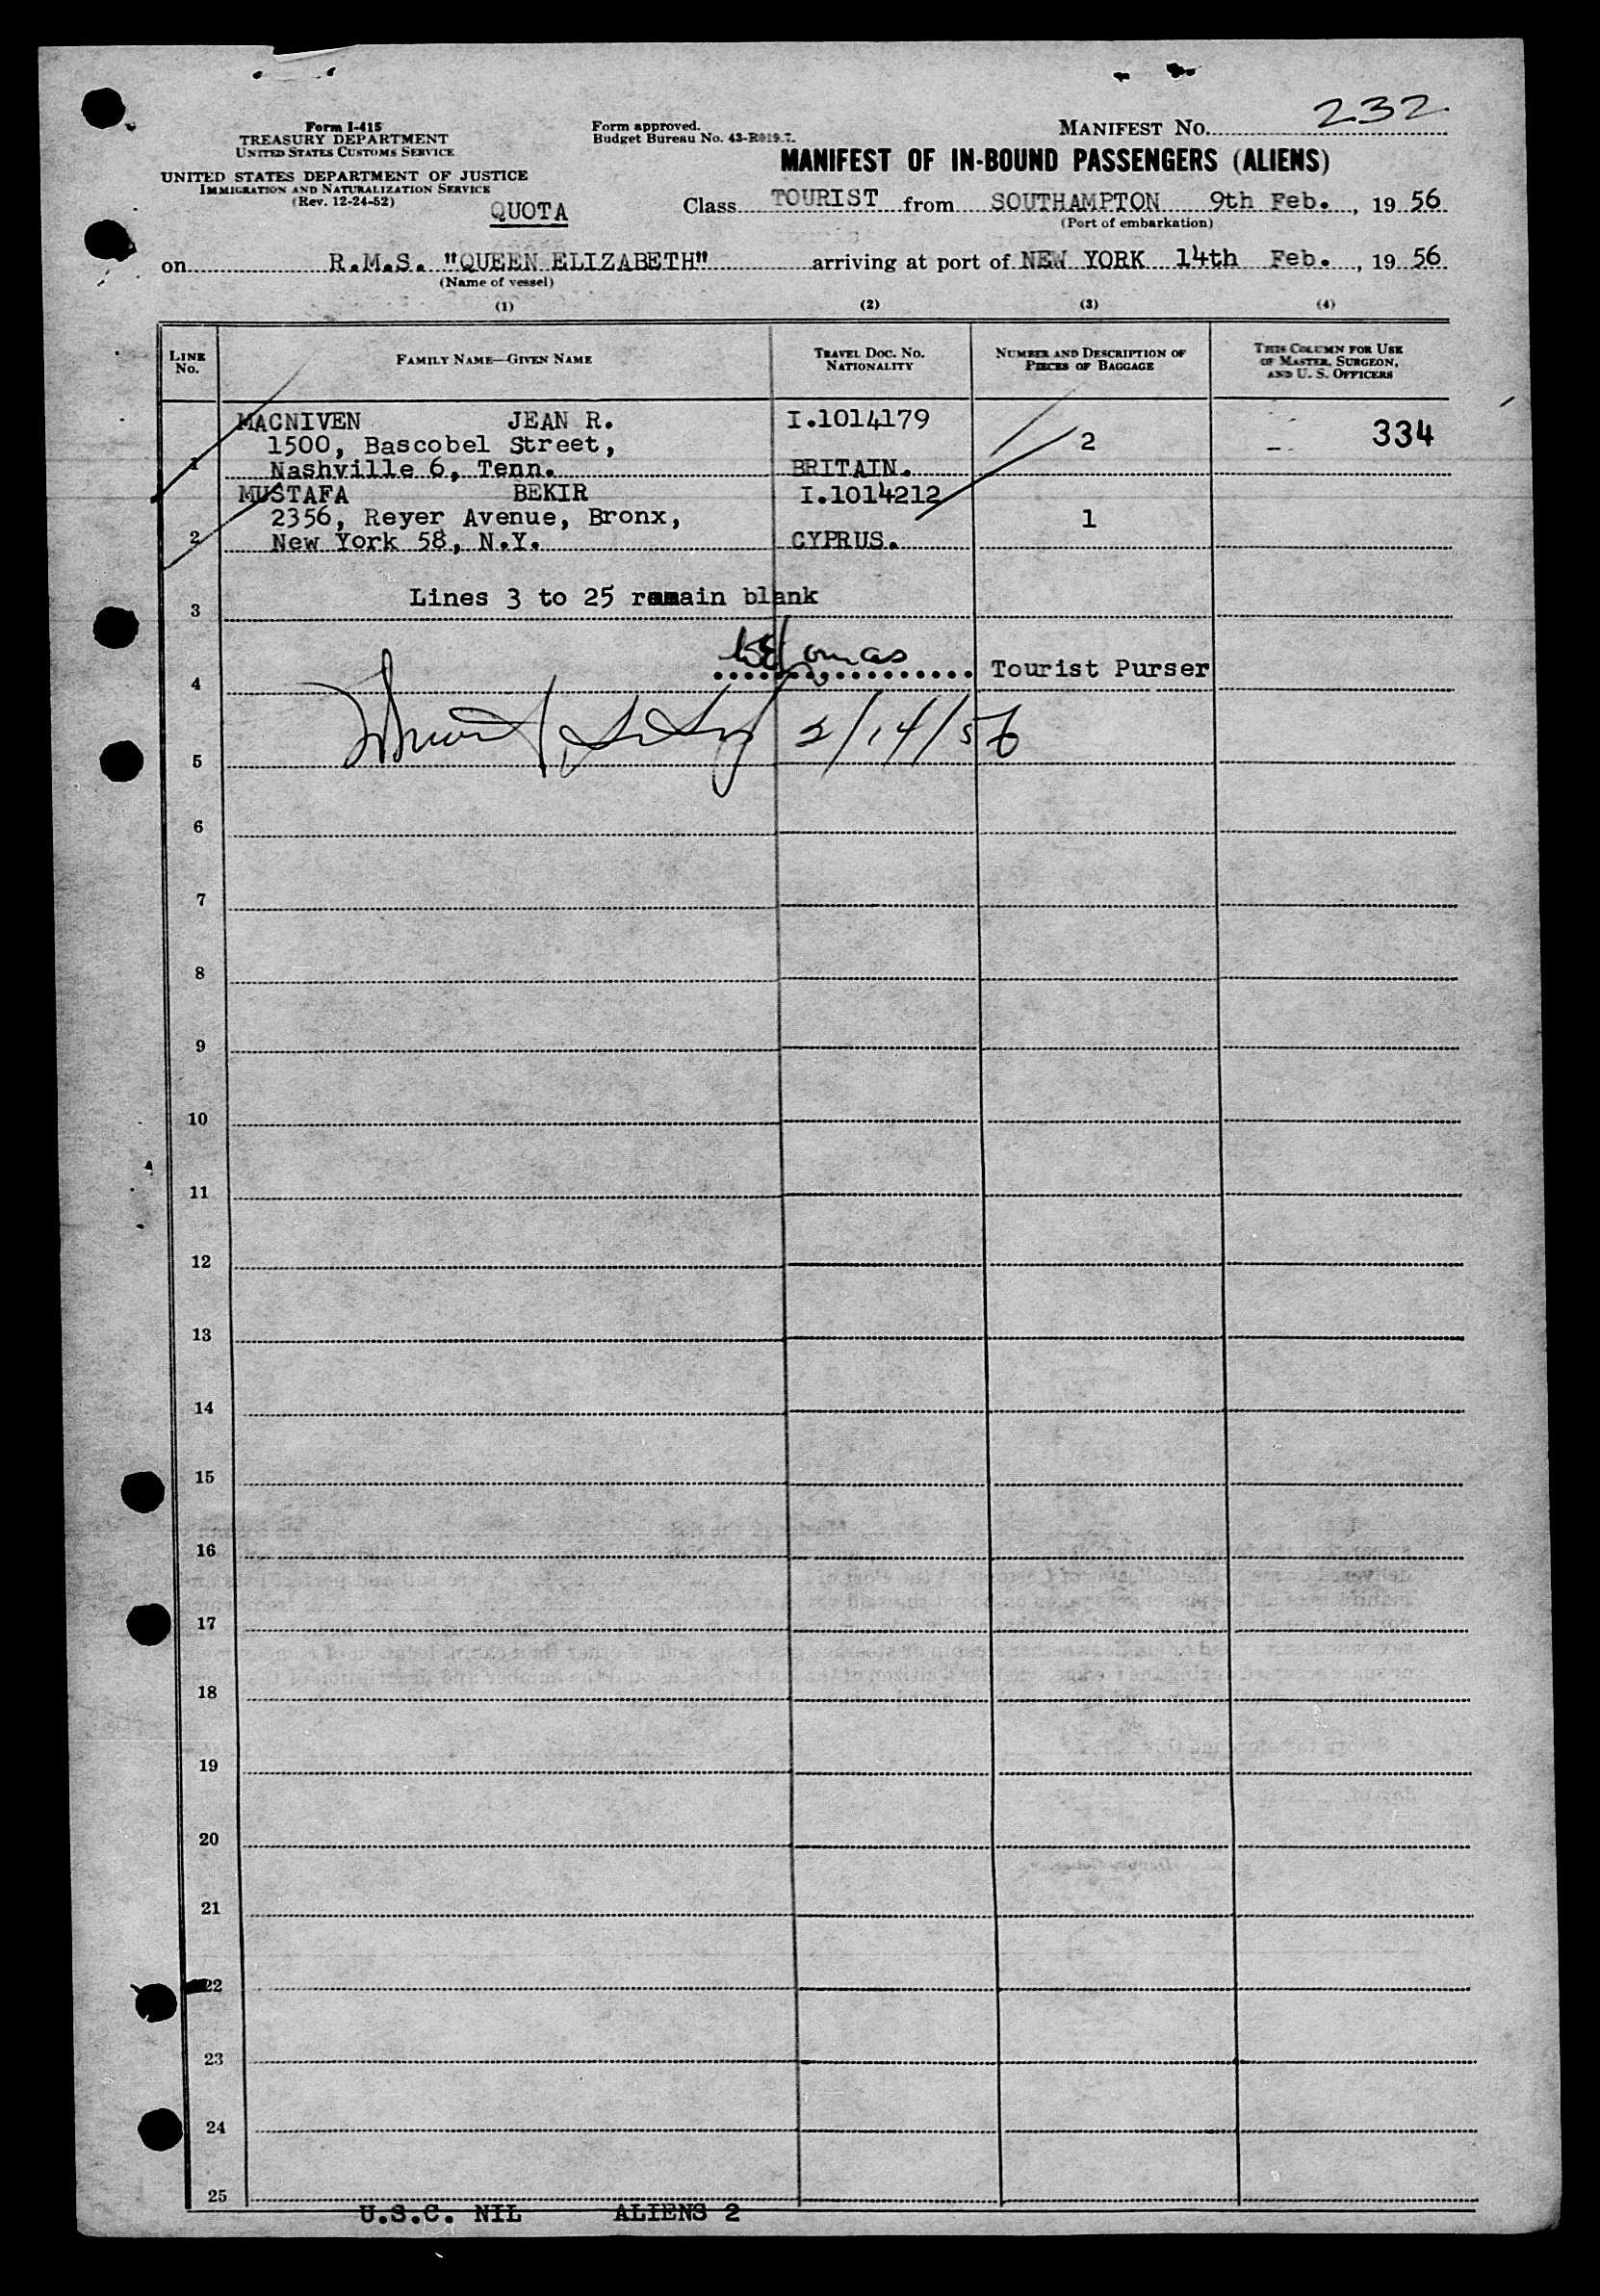 232
Form I-415
TREASURY DEPARTMENT
UNITED STATES CUSTOMS SERVICE
UNITED STATES DEPARTMENT OF JUSTICE
IMMIGRATION AND NATURALIZATION SERVICE
(Rev. 12-24-52)
Form approved.
Budget Bureau No. 43-R019.7.
MANIFEST NO.
MANIFEST OF IN-BOUND PASSENGERS (ALIENS)
QUOTA
Class TOURIST from SOUTHAMPTON 9th Feb., 19 56
(Port of embarkation)
on R.M.S. "QUEEN ELIZABETH" arriving at port of NEW YORK 14th Feb., 19 56
(Name of vessel)
(1) (2) (3) (4)
LINE NO.
FAMILY NAME—GIVEN NAME
TRAVEL DOC. NO. NATIONALITY
NUMBER AND DESCRIPTION OF PIECES OF BAGGAGE
THIS COLUMN FOR USE OF MASTER, SURGEON, AND U. S. OFFICERS
MACNIVEN JEAN R. I.1014179
1500, Bascobel Street, 2 334
1 Nashville 6, Tenn. BRITAIN.
MUSTAFA BEKIR I.1014212
2356, Reyer Avenue, Bronx, 1
2 New York 58, N.Y. CYPRUS.
Lines 3 to 25 remain blank
3
Tourist Purser
4
2/14/56
5
6
7
8
9
10
11
12
13
14
15
16
17
18
19
20
21
22
23
24
25
U.S.C. NIL ALIENS 2